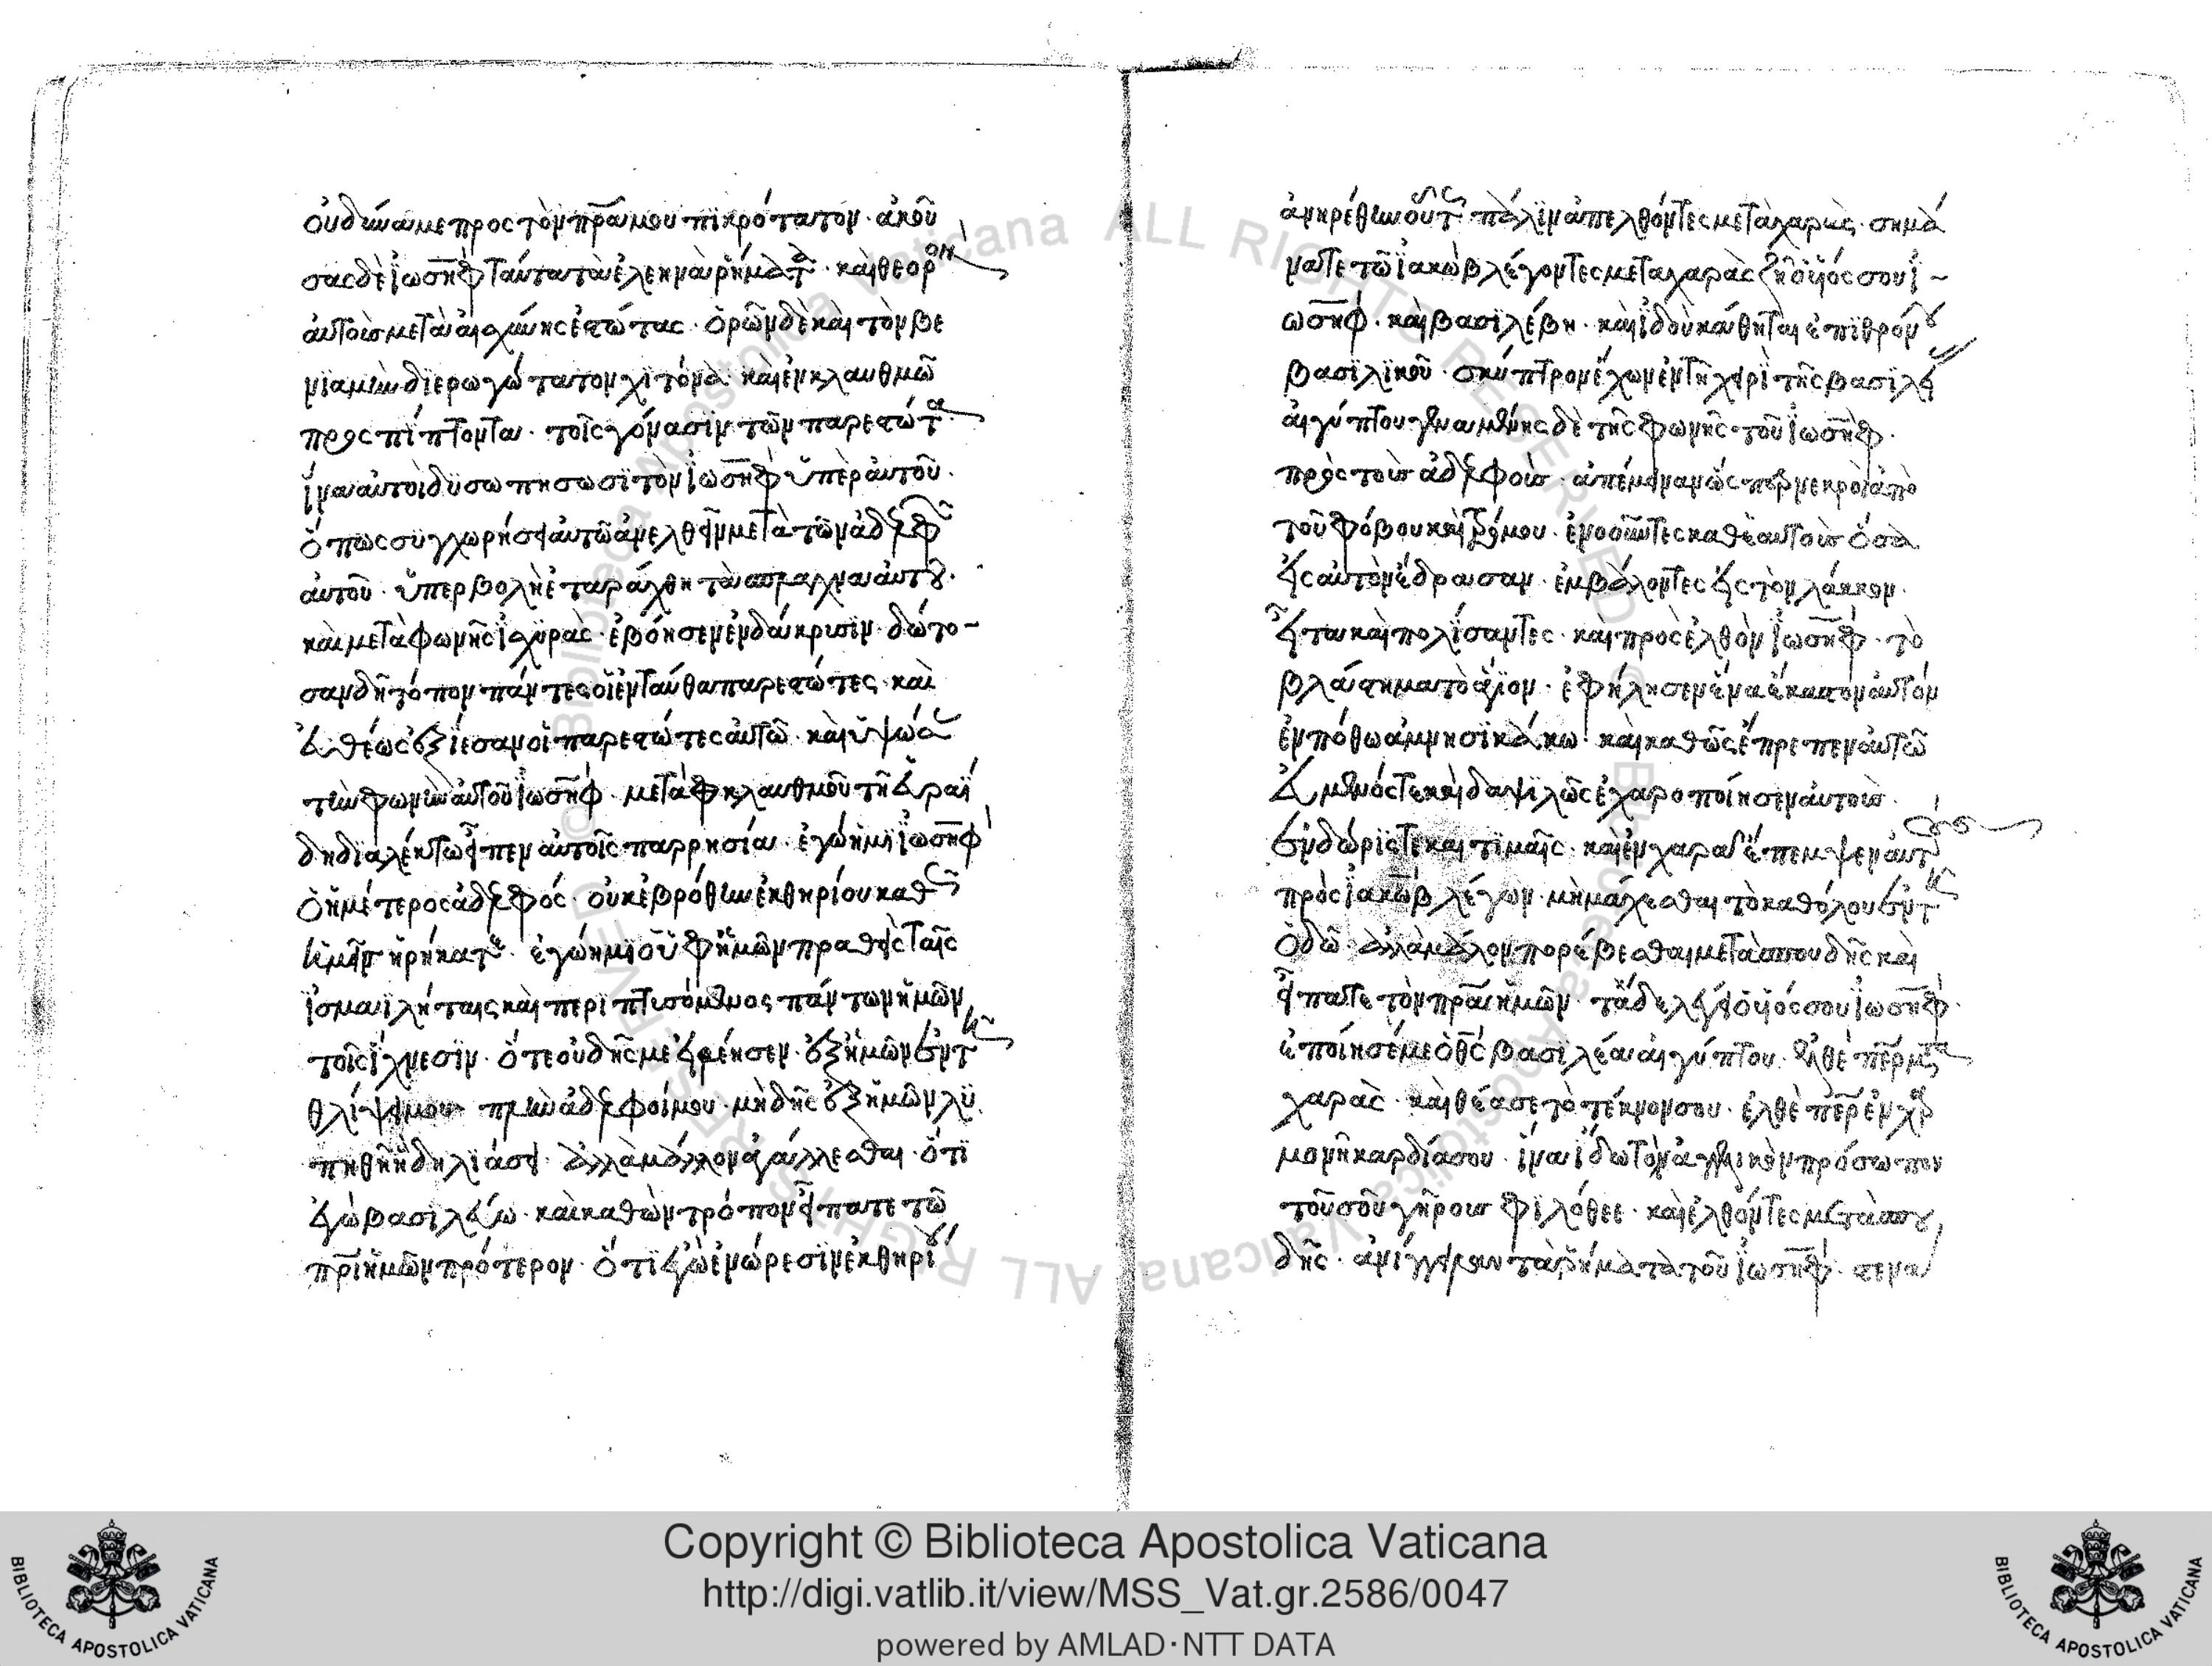 οὐ δύναμε προς τὸν πρα μου πϊκρότατον· ἀκού
σας δὲ ἰωσὴφ ταῦτα τὰ ἐλεεινὰ ῥήματα· καὶ θεορον
αὐτοὺσ μετὰ αἰσχύνης ἑστώτας· ὁρῶν δὲ καὶ τὸν βε
νϊαμὶν διερωγώτα τον χϊτόνα· καὶ ἐν κλαυθμῶ
προςπίπτονται· τοῖς γόνασϊν τῶν παρεστώτ
ἵνα αὐτοὶ δϋσωπησωσϊ τὸν ἰωσὴφ ὑπὲρ αὐτοῦ·
ὅπως συγχωρήσει αὐτῶ ἀνελθεῖν μετὰ τῶν ἀδελφ
αὐτοῦ· ὑπερβολὴ ἐταράχθη τὰ σπλαγχνα αὐτου·
καὶ μετὰ φωνῆς ἰσχϋρὰς· ἐβόησεν ἐν δάκρισϊν· δώτο
σαν δὴ τόπον πάντες οἱ ἐνταῦθα παρεστώτες· καὶ
εὐθέως ἐξϊεσαν οἱ παρεστώτες αὐτῶ· καὶ ὑψώσ
τὴν φωνὴν αὐτοῦ ἰωσὴφ· μετὰ κλαυθμοῦ τῆ ἑβραϊ
δη διαλέκτω εἶπεν αὐτοῖς παρρησία· ἐγώ ημϊ ἰωσὴφ
ὁ ἡμέτερος ἀδελφός· οὐκ ἐβρόθην ἐκ θηρίου καθ
ἡμεῖς ηρήκατε· ἐγώ ημι ὁ ὑφ ἡμῶν πραθεὶς ταῖς
ἰσμαϊλήταις καὶ περϊπτισόμενος πάντων ἡμῶν
τοῖς ἴχνεσϊν· ὅτε οὐδῆς με ἠλέησεν· ἐξ ἡμῶν ἐν τ
θλίψει μου· πλὴν ἀδελφοί μου· μὴδῆς ἐξ ἡμῶν λϋ
πηθῆ ἢ δηλϊάσει· ἀλλὰ μάλλον ἀγάλλεσθαι· ὅτϊ
ἐγὼ βασϊλεύω· καὶ καθὼν τρόπον εἴπατε τῶ
πρϊ ἡμῶν πρότερον· ὅτϊ ἐγὼ ἐν ὡρεσϊν ἐκ θηρίου
ἀνηρέθην οὕτως πάλϊν ἀπελθόντες μετὰ χαρὰς· σημά
νατε τῶ ἰακὼβ λέγοντες μετα χαρὰς ζῆ ὁ υἱός σου ἰ
ωσὴφ· καὶ βασϊλέβη· καὶ ἰδοὺ κάθηται ἐπϊ θρόνου
βασϊλικοῦ· σκύπτρον ἔχων ἐν τῆ χειρϊ τῆς βασϊλεί
αἰγύπτου γεναμένης δὲ τῆς φωνῆς τοῦ ἰωσὴφ·
πρὸς τοὺσ ἀδελφοὺσ· ἀπέμειναν ὥσπερ νεκροὶ ἀπὸ
τοῦ φόβου καὶ τρόμου· ἐνοοῦντες καθ' ἑαυτοὺσ ὅσα
εἰς αὐτὸν ἔδρασαν· ἐμβάλοντες εἰς τὸν λάκκον·
εἶτα καὶ πολίσαντες· καὶ προςελθὸν ἰωσὴφ· τὸ
βλάστημα τὸ ἅγϊον· ἐφήλησεν ἕνα ἕκαστον αὐτόν
ἐν πόθω ἀμνησϊκάκω· καὶ καθῶς ἔπρεπεν αὐτῶ
εὐμενός τε καὶ δαψϊλῶς ἐχαροποίησεν αὐτοὺσ·
ἐν δώρϊς τε καὶ τϊμαῖς· καὶ ἐν χαρα ἔπεμψεν αὐτοὺσ
πρὸς ἰακὼβ λέγων· μὴ μάχεσθαι τὸ καθόλου ἐν τ
ὁδῶ· ἀλλὰ μάλλον πορέβεσθαι μετὰ σπουδῆς καὶ
εἴπατε τὸν πρα ἡμῶν· τάδε λέγει ὁ υἱός σου ἰωσὴφ·
ἐποίησέ με ὁ θς βασϊλέα αἰγύπτου· ἐλθὲ περ μετα
χαρὰς· καὶ θέασε τὸ τέκνον σου· ἐλθὲ περ ἐν χαρ
μονῆ καρδίας σου· ἵνα ἴδω τὸν ἀγγελικὸν πρόσωπον
τοῦ σοῦ γῆρουσ φϊλόθεε· καὶ ἐλθόντες μετὰ σπου
δῆς· ἀνίγγειλαν τὰ ῥήματα τοῦ ἰωσὴφ·
Copyright © Biblioteca Apostolica Vaticana
http://digi.vatlib.it/view/MSS_Vat.gr.2586/0047
powered by AMLAD·NTT DATA
BIBLIOTECA APOSTOLICA VATICANA
BIBLIOTECA APOSTOLICA VATICANA